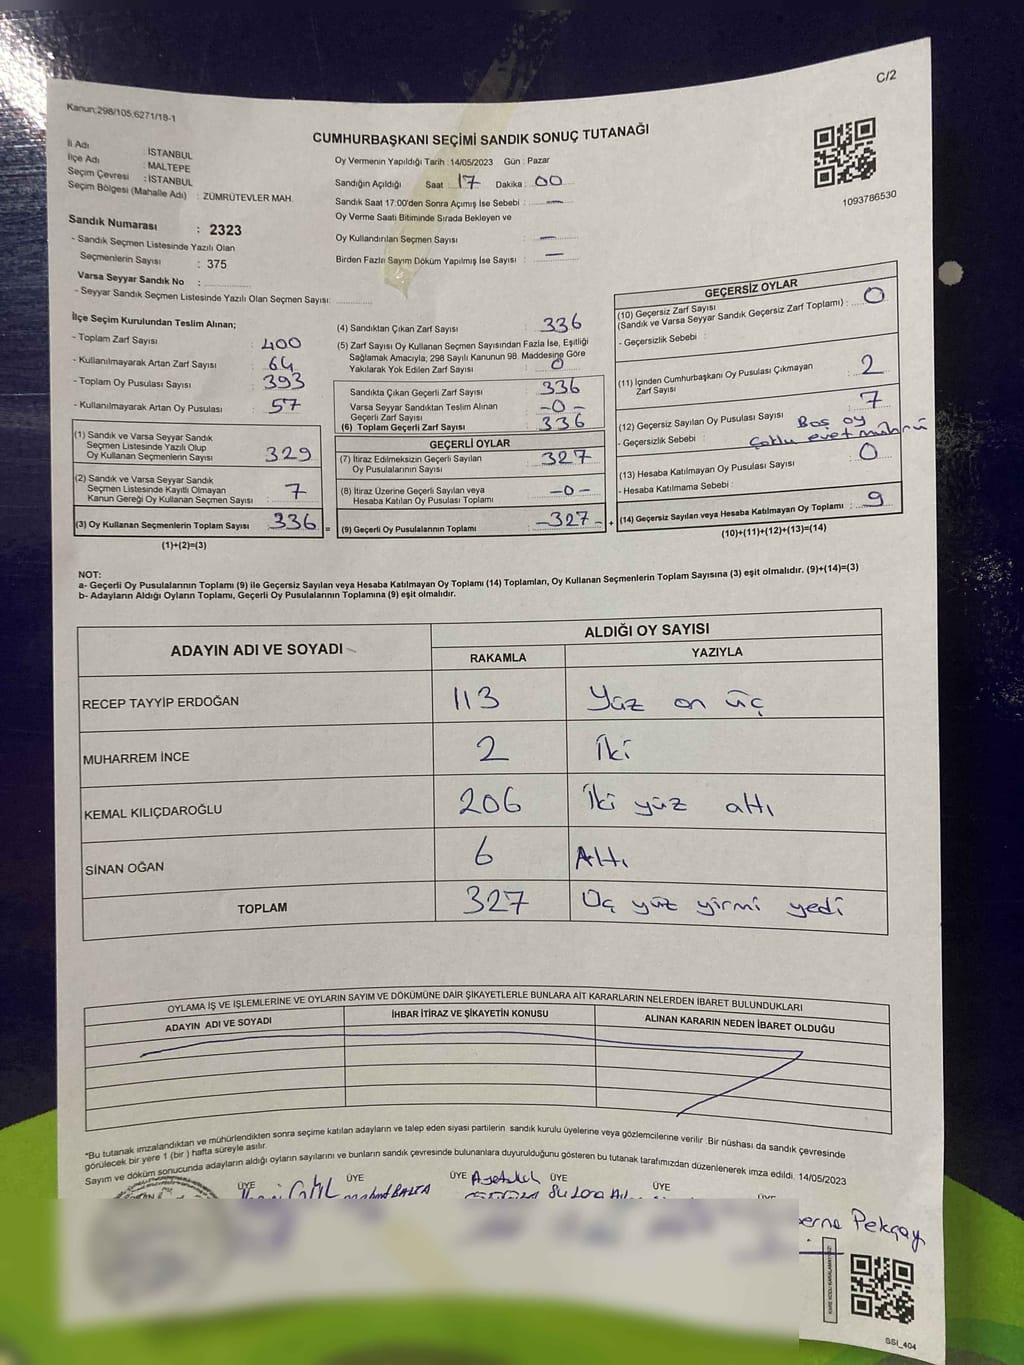 C/2
Kanun:298/105,6271/18-1
CUMHURBAŞKANI SEÇİMİ SANDIK SONUÇ TUTANAĞI
İl Adı : İSTANBUL
İlçe Adı : MALTEPE
Seçim Çevresi : İSTANBUL
Seçim Bölgesi (Mahalle Adı) : ZÜMRÜTEVLER MAH.
Sandık Numarası : 2323
- Sandık Seçmen Listesinde Yazılı Olan
Seçmenlerin Sayısı : 375
Varsa Seyyar Sandık No :
- Seyyar Sandık Seçmen Listesinde Yazılı Olan Seçmen Sayısı:
Oy Vermenin Yapıldığı Tarih :14/05/2023 Gün : Pazar
Sandığın Açıldığı Saat : 17 Dakika : 00
Sandık Saat 17:00'den Sonra Açımış İse Sebebi : —
Oy Verme Saati Bitiminde Sırada Bekleyen ve
Oy Kullandırılan Seçmen Sayısı : —
Birden Fazla Sayım Döküm Yapılmış İse Sayısı : —
1093786530
İlçe Seçim Kurulundan Teslim Alınan;
- Toplam Zarf Sayısı : 400
- Kullanılmayarak Artan Zarf Sayısı : 64
- Toplam Oy Pusulası Sayısı : 393
- Kullanılmayarak Artan Oy Pusulası : 57
(1) Sandık ve Varsa Seyyar Sandık
Seçmen Listesinde Yazılı Olup
Oy Kullanan Seçmenlerin Sayısı : 329
(2) Sandık ve Varsa Seyyar Sandık
Seçmen Listesinde Kayıtlı Olmayan
Kanun Gereği Oy Kullanan Seçmen Sayısı : 7
(3) Oy Kullanan Seçmenlerin Toplam Sayısı : 336
(1)+(2)=(3)
(4) Sandıktan Çıkan Zarf Sayısı : 336
(5) Zarf Sayısı Oy Kullanan Seçmen Sayısından Fazla İse, Eşitliği
Sağlamak Amacıyla; 298 Sayılı Kanunun 98. Maddesine Göre
Yakılarak Yok Edilen Zarf Sayısı : 0
Sandıkta Çıkan Geçerli Zarf Sayısı : 336
Varsa Seyyar Sandıktan Teslim Alınan
Geçerli Zarf Sayısı : -0-
(6) Toplam Geçerli Zarf Sayısı : 336
GEÇERLİ OYLAR
(7) İtiraz Edilmeksizin Geçerli Sayılan
Oy Pusulalarının Sayısı : 327
(8) İtiraz Üzerine Geçerli Sayılan veya
Hesaba Katılan Oy Pusulası Toplamı : -0-
(9) Geçerli Oy Pusulalarının Toplamı : -327-
GEÇERSİZ OYLAR
(10) Geçersiz Zarf Sayısı
(Sandık ve Varsa Seyyar Sandık Geçersiz Zarf Toplamı) : 0
- Geçersizlik Sebebi :
(11) İçinden Cumhurbaşkanı Oy Pusulası Çıkmayan
Zarf Sayısı : 2
(12) Geçersiz Sayılan Oy Pusulası Sayısı : 7
- Geçersizlik Sebebi : Boş oy
Çoklu evet mührü
(13) Hesaba Katılmayan Oy Pusulası Sayısı : 0
- Hesaba Katılmama Sebebi :
(14) Geçersiz Sayılan veya Hesaba Katılmayan Oy Toplamı : 9
(10)+(11)+(12)+(13)=(14)
NOT:
a- Geçerli Oy Pusulalarının Toplamı (9) ile Geçersiz Sayılan veya Hesaba Katılmayan Oy Toplamı (14) Toplamları, Oy Kullanan Seçmenlerin Toplam Sayısına (3) eşit olmalıdır. (9)+(14)=(3)
b- Adayların Aldığı Oyların Toplamı, Geçerli Oy Pusulalarının Toplamına (9) eşit olmalıdır.
ADAYIN ADI VE SOYADI
ALDIĞI OY SAYISI
RAKAMLA YAZIYLA
RECEP TAYYİP ERDOĞAN 113 Yüz on üç
MUHARREM İNCE 2 İki
KEMAL KILIÇDAROĞLU 206 İki yüz altı
SİNAN OĞAN 6 Altı
TOPLAM 327 Üç yüz yirmi yedi
OYLAMA İŞ VE İŞLEMLERİNE VE OYLARIN SAYIM VE DÖKÜMÜNE DAİR ŞİKAYETLERLE BUNLARA AİT KARARLARIN NELERDEN İBARET BULUNDUKLARI
ADAYIN ADI VE SOYADI İHBAR İTİRAZ VE ŞİKAYETİN KONUSU ALINAN KARARIN NEDEN İBARET OLDUĞU
*Bu tutanak imzalandıktan ve mühürlendikten sonra seçime katılan adayların ve talep eden siyasi partilerin sandık kurulu üyelerine veya gözlemcilerine verilir .Bir nüshası da sandık çevresinde
görülecek bir yere 1 (bir ) hafta süreyle asılır.
Sayım ve döküm sonucunda adayların aldığı oyların sayılarını ve bunların sandık çevresinde bulunanlara duyurulduğunu gösteren bu tutanak tarafımızdan düzenlenerek imza edildi. 14/05/2023
ÜYE ÜYE ÜYE ÜYE ÜYE
Pekçay
SSI_404